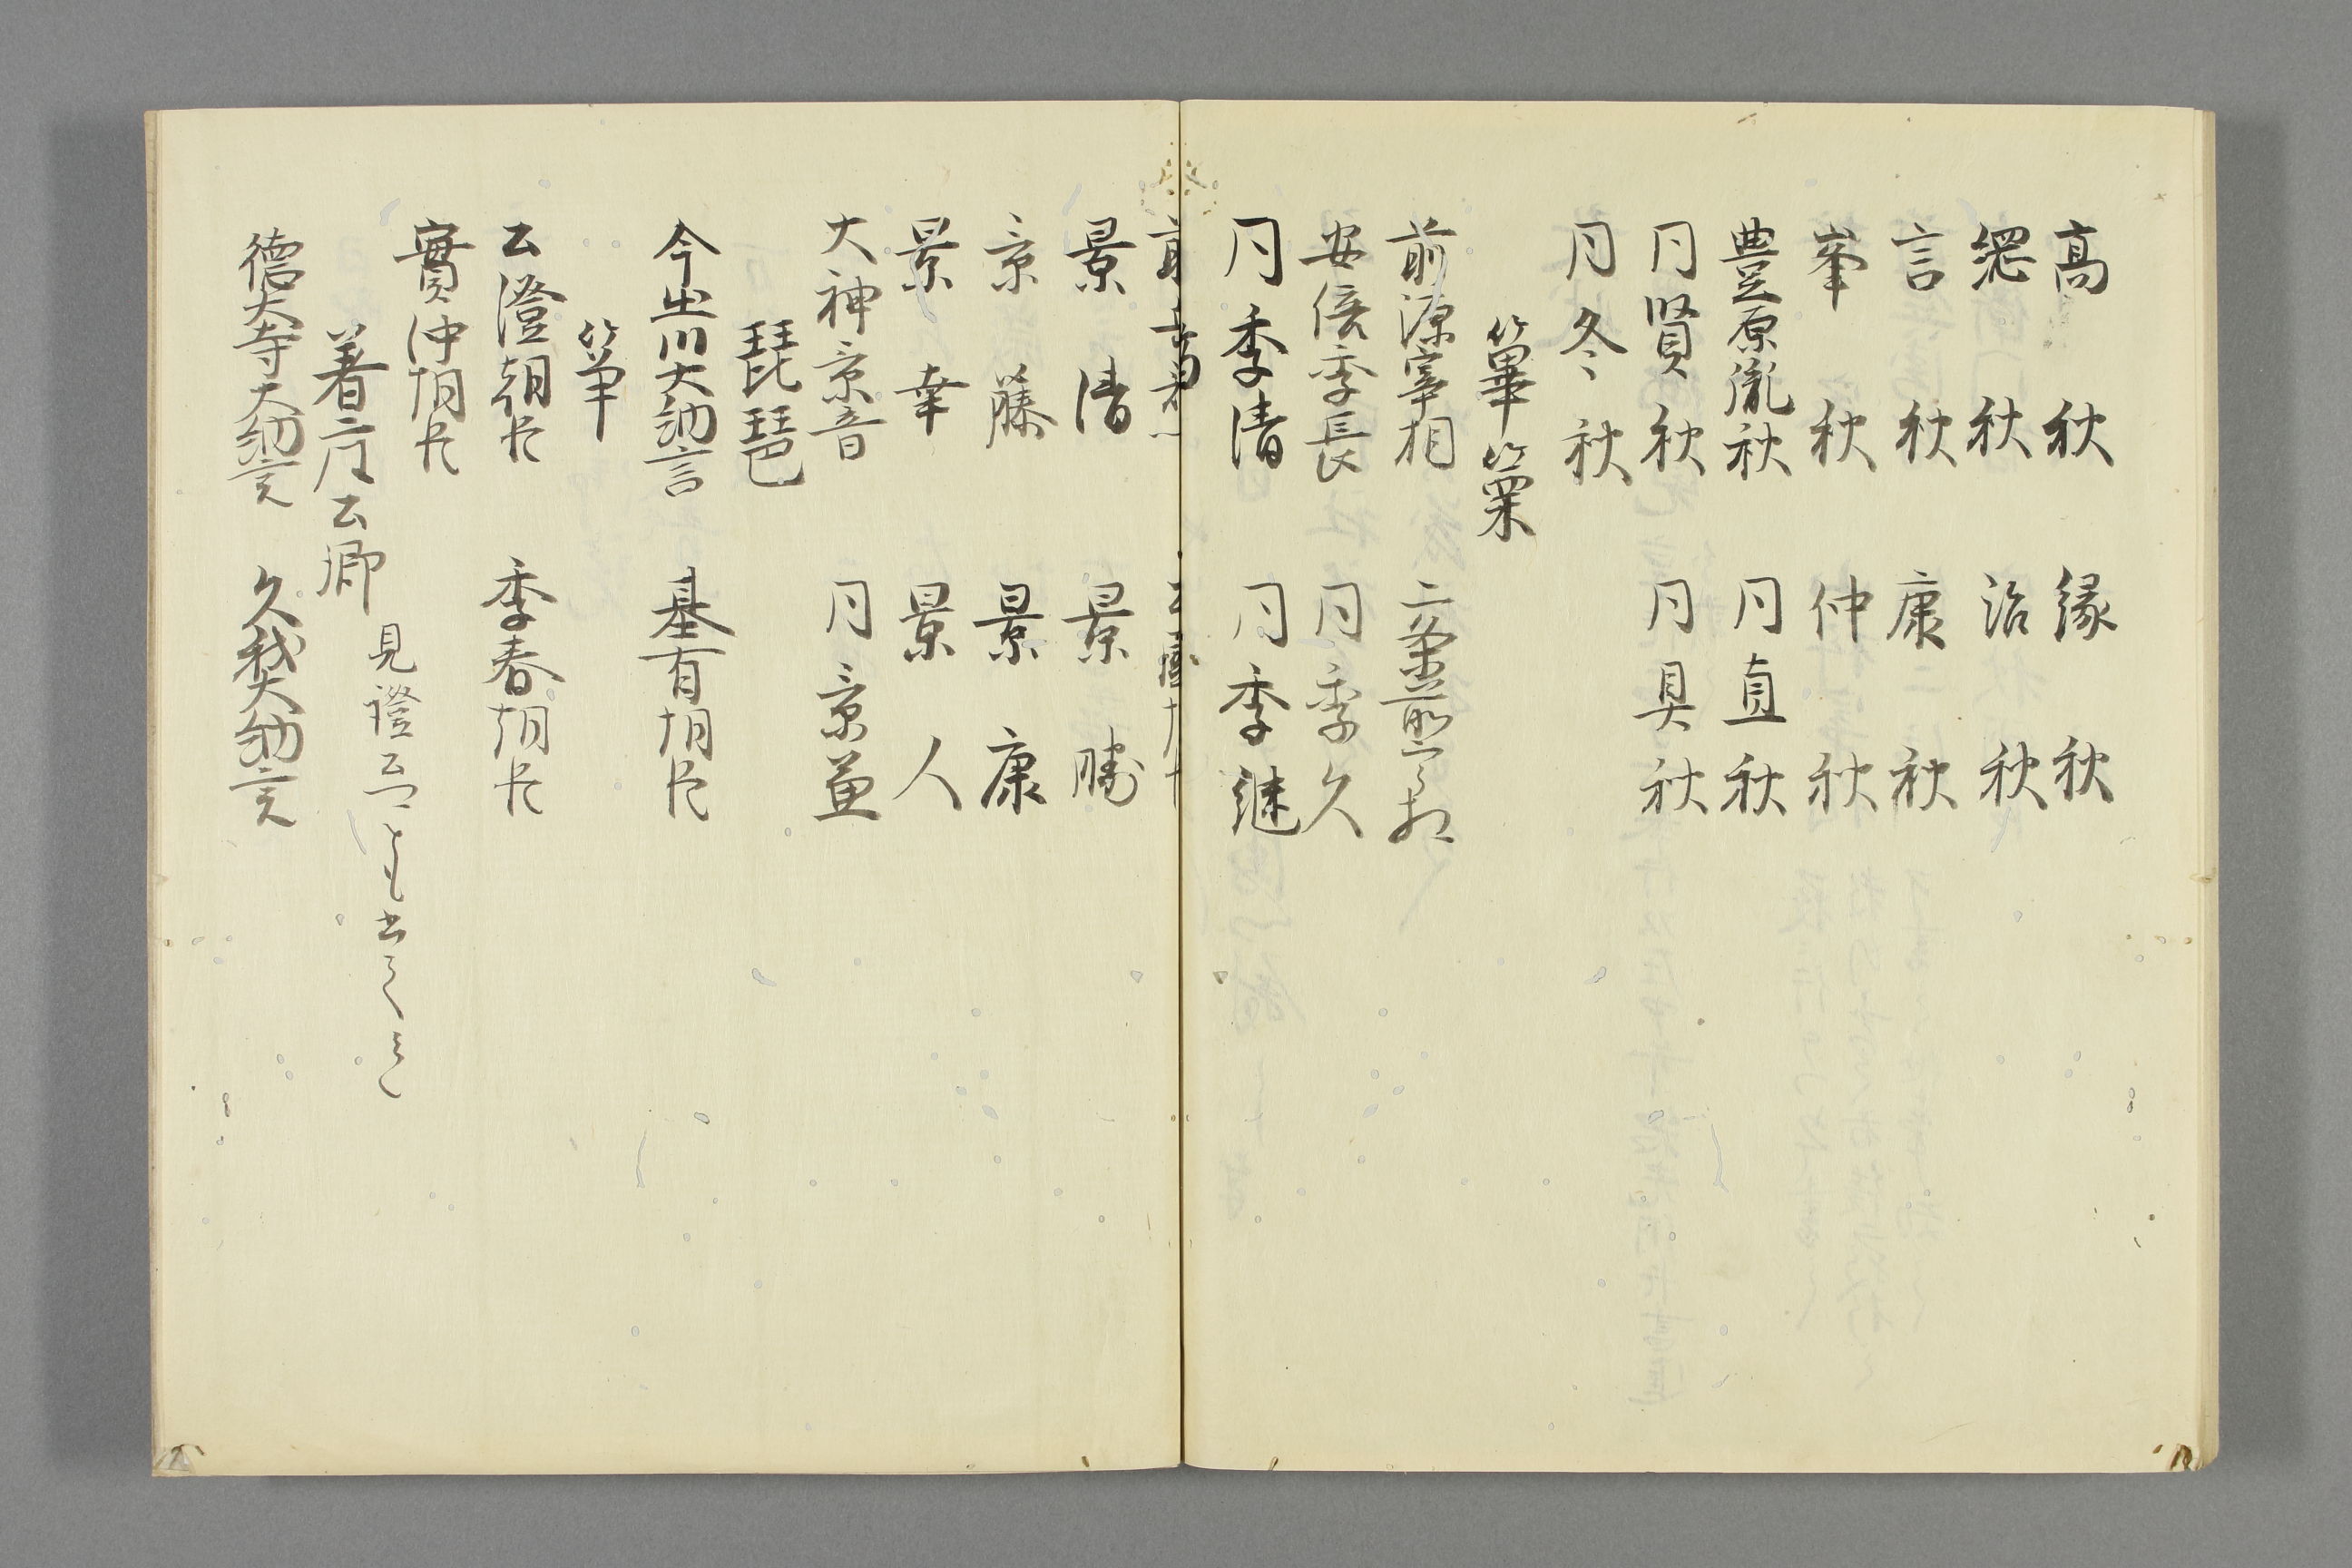 高秋　縁秋
秋　治秋
言秋　康秋
峯秋　仲秋
豊原胤秋　同直秋
同賢秋　同具秋
同冬秋
篳篥
前源宰相　二条前宰相
安倍季長　同季久
同季清　同季継
景清　景勝
景藤　景康
景幸　景人
大神景音　同景益
琵琶
今出川大納言　基有朝臣
箏
公澄朝臣　季春朝臣
實仲朝臣
著座公卿　見證
徳大寺大納言　久我大納言